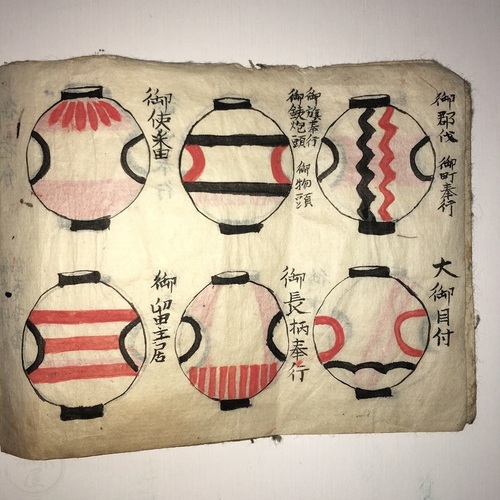 御郡代 御町奉行
御旗奉行
御鉄炮頭
御物頭
御使番
大御目付
御長柄奉行
御留主居